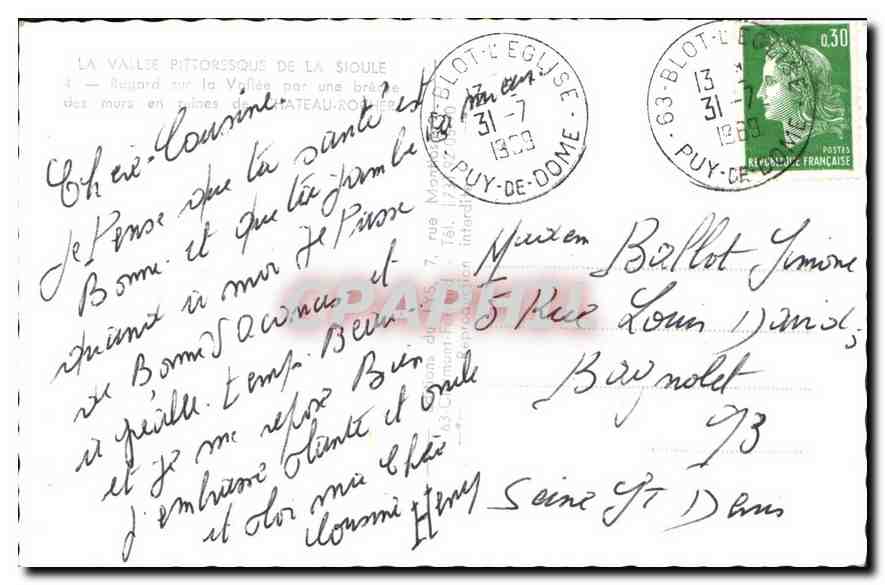 LA VALLEE PITTORESQUE DE LA SIOULE
4 — Regard sur la Vallée par une brèche
des murs en ruines de CHATEAU-ROCHER
Chère Cousine
Je Pense que ta santé est
Bonne et que ta jambe va mieux.
quand à moi Je Passe
de Bonne Vacances et
agréable. temps. Beau
et Je me repose Bien
J'embrasse tante et oncle
et toi ma Chère
Cousine Henry
7, rue
Reproduction interdite
63-BLOT-L'EGLISE
13
31-7
1969
PUY-DE-DOME
63-BLOT-L'EGLISE
13 *
31-7
1969
PUY-DE-DOME
0,30
POSTES
REPUBLIQUE FRANÇAISE
Ballot Simone
5 Rue Louis David,
Bagnolet
93
Seine St Denis
CPAPHIL